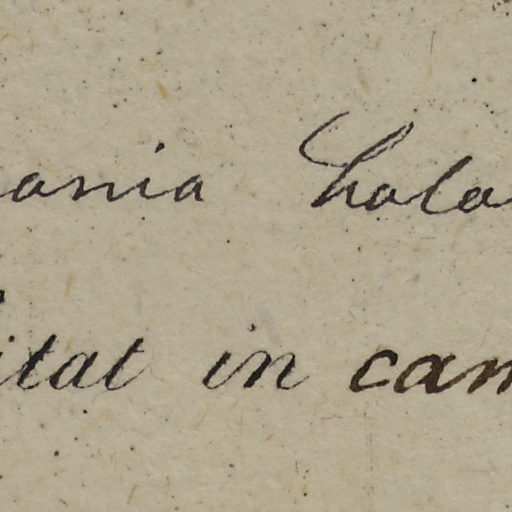 ania hala
itat in cam